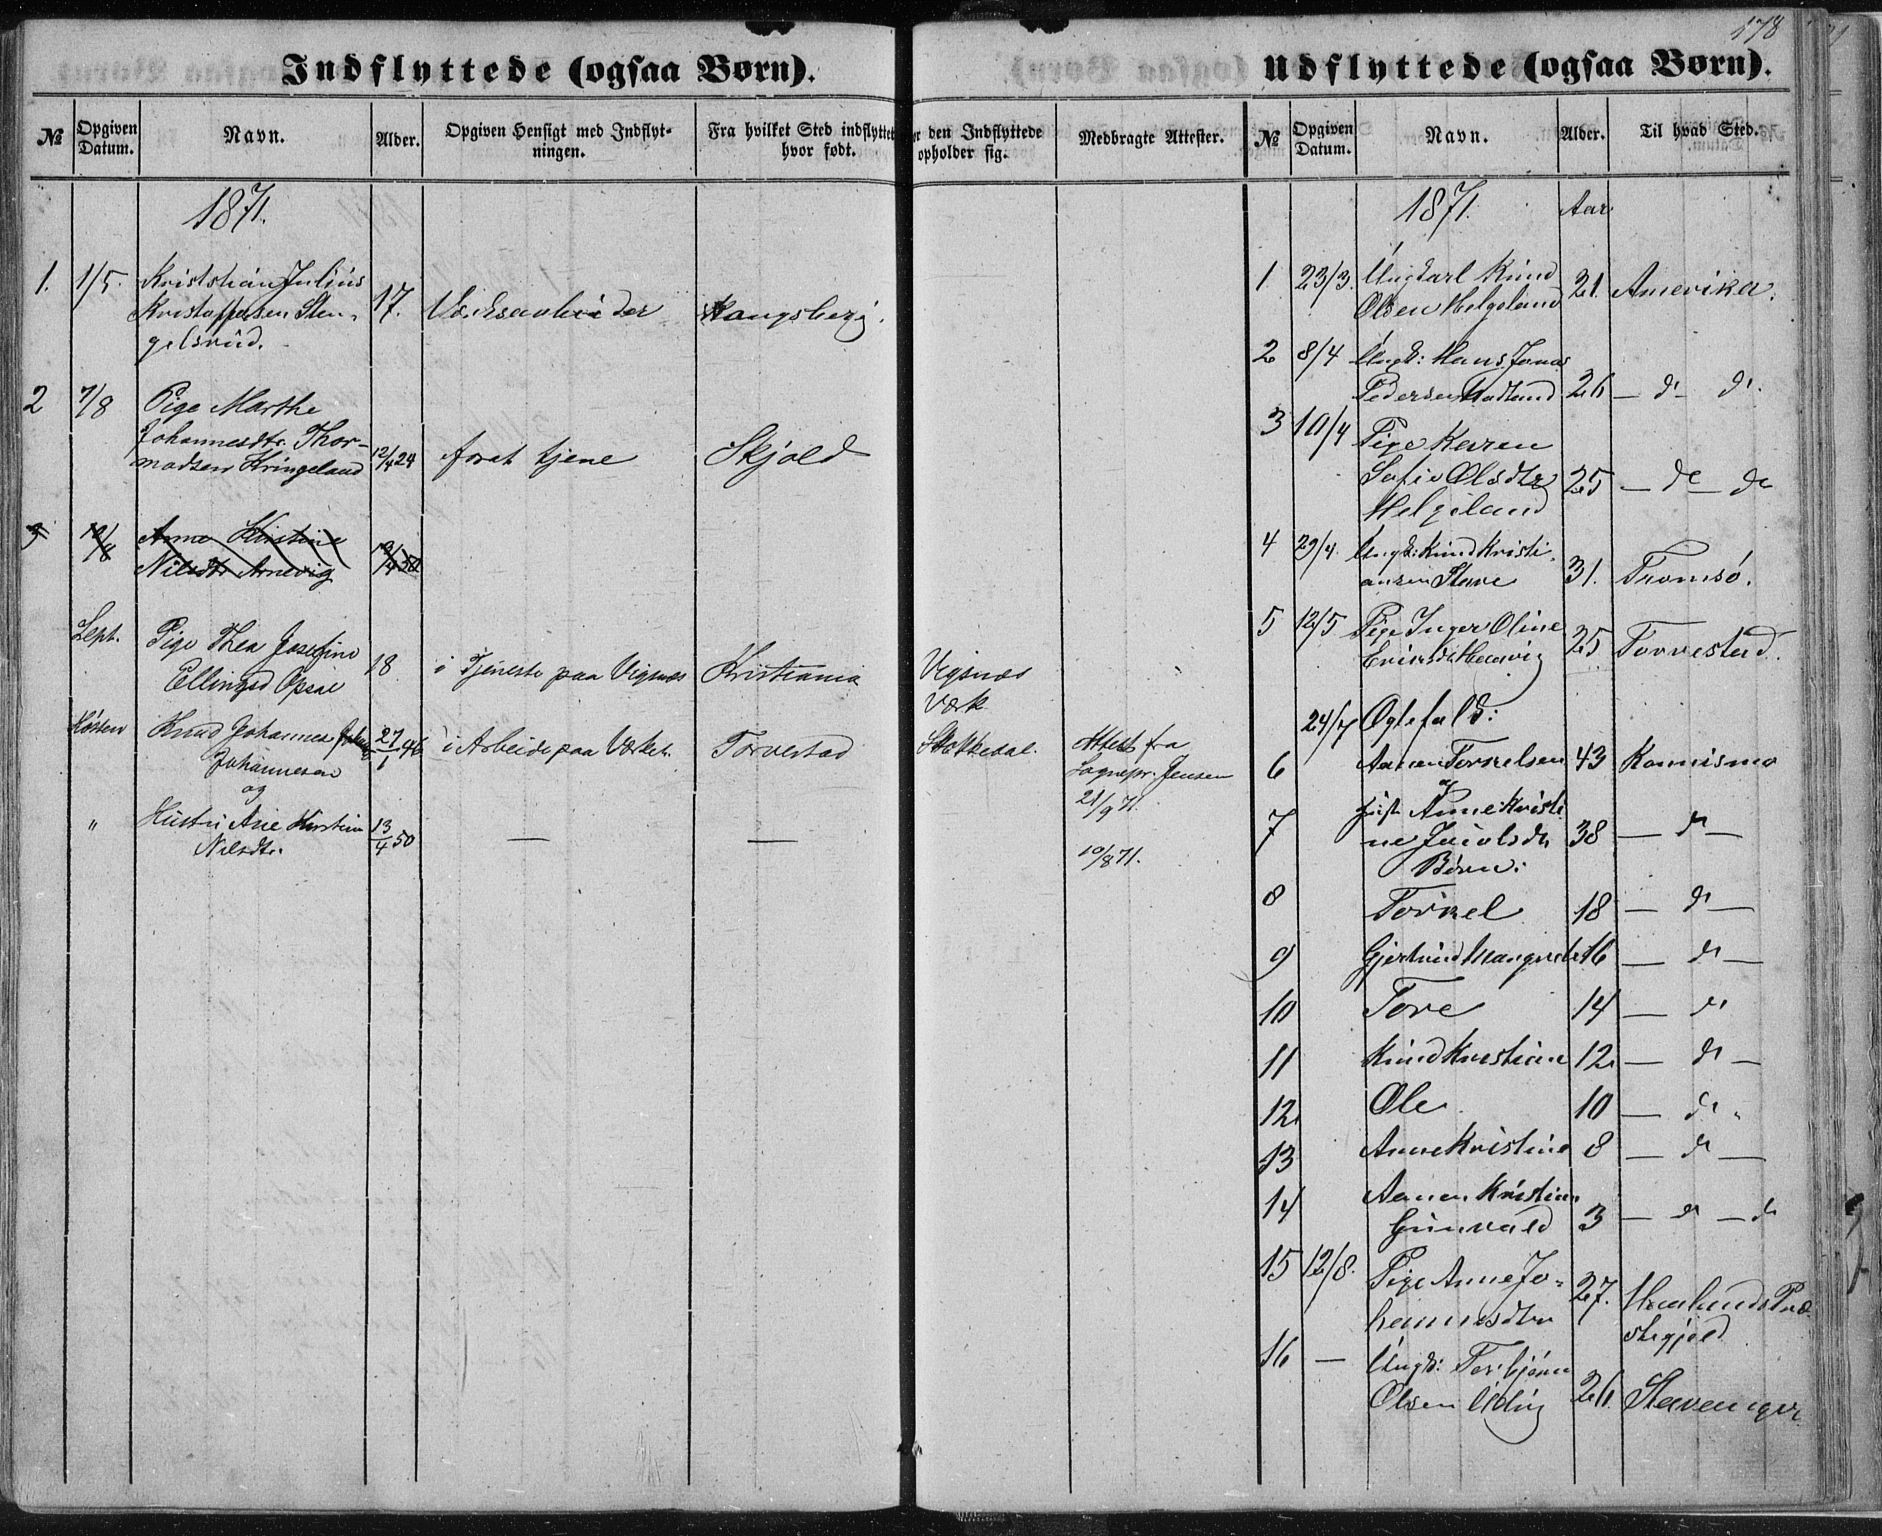 178
Indflyttede (ogsaa Børn).
№
Opgiven Datum.
Navn.
Alder.
Opgiven Hensigt med Indflyt-
ningen.
Fra hvilket Sted indflyttet
hvor født.
er den Indflyttede
opholder sig.
Medbragte Attester.
1871.
1. 1/5. Kristshian Julius
Kristoffersen Sten-
gelsrud. 17. Værksarbeider Kongsberg.
2 7/8 Pige Marthe
Johannesdtr. Thor-
madsen Kringeland 12/4 24 forat tjene Skjold
3 12/8 Anna Kirstine
Nilsdtr Arnevig
Sept. Pige Thea Josefine
Ellingsd Opsal 18 i Tjeneste paa Vigsnæs Kristiania Vigsnæs
Værk
Høsten Knud Johannes
Johannesen 27/1 46 i Arbeide paa Værket. Torvestad Stokkedal. Attest fra
Sognepr. Jensen
21/9 71.
og
" Hustru Ane Kirstine
Nilsdtr. 13/4 50 — — 10/8 71.
Udflyttede (ogsaa Børn).
№
Opgiven Datum.
Navn.
Alder.
Til hvad Sted.
1871. Aar
1 23/3. Ungkarl Knud
Olsen Helgeland 21. Amerika.
2 8/4 Ungk: Hans Jonas
Pedersen Madland 26 — d — d.
3 10/4 Pige Karen
Sofie Olsdtr
Helgeland 25 — do — do
4 29/4. Ungk: Knud Kristi-
ansen Stave 31. Tromsø.
5 12/5 Pige Inger Oline
Eriksdtr Hervig 25 Torvestad.
24/7 Øglefald:
6 Aanen Torkelsen 43 Konnismo
og
7 Hust. Anne Kristi
ne Jacobsdtr 38 — do —
Børn:
8 Torkel 18 — do —
9 Gjertrud Margrete 16 — do —
10 Tore 14 — do
11 Knud Kristian 12 — do —
12 Ole 10 — do "
13 Anne Kristine 8 — do —
14 Aanen Kristian
Gunvald 3 — do — do
15 12/8. Pige Anne Jo-
hannesdtr 27. Haalands Præ
stegjeld
16 — Ungk: Torbjørn
Olsen Udvig 26. Stavanger.